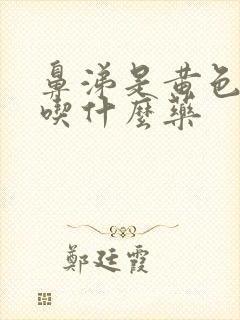 鼻涕是黄色
喫什麼藥
鄭廷霞